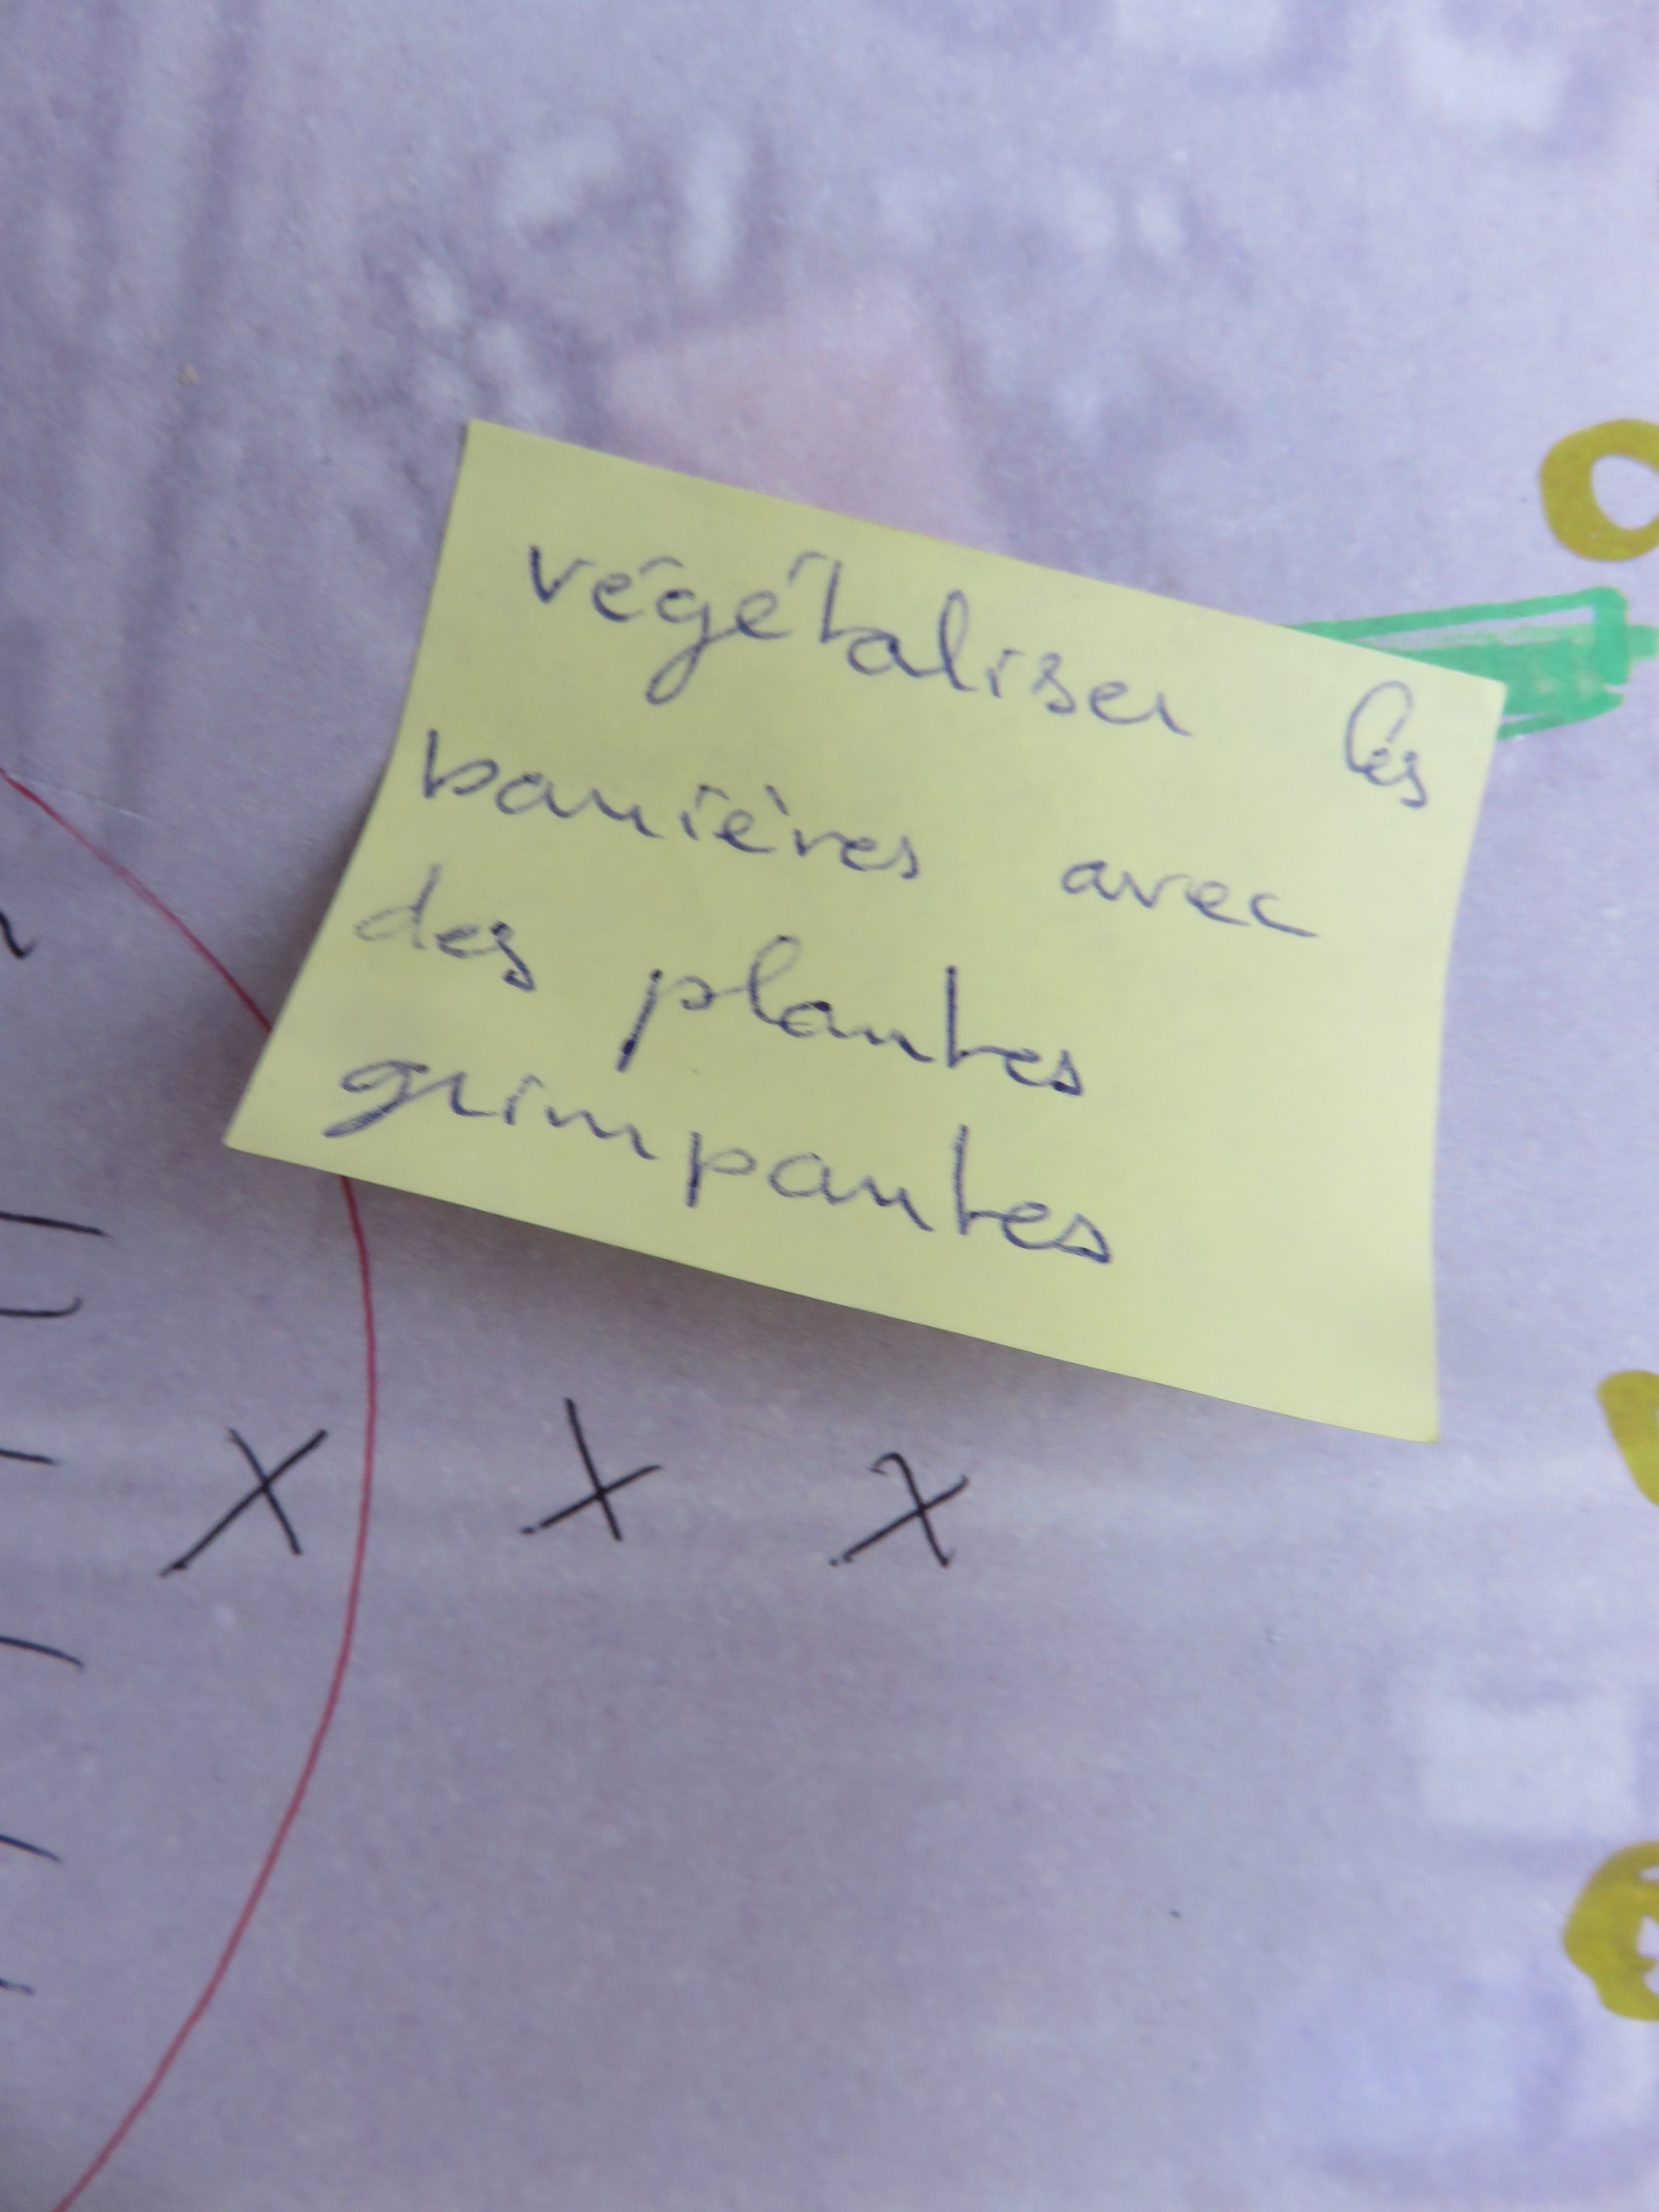 végétaliser les
barrières avec
des plantes
grimpantes
X X X